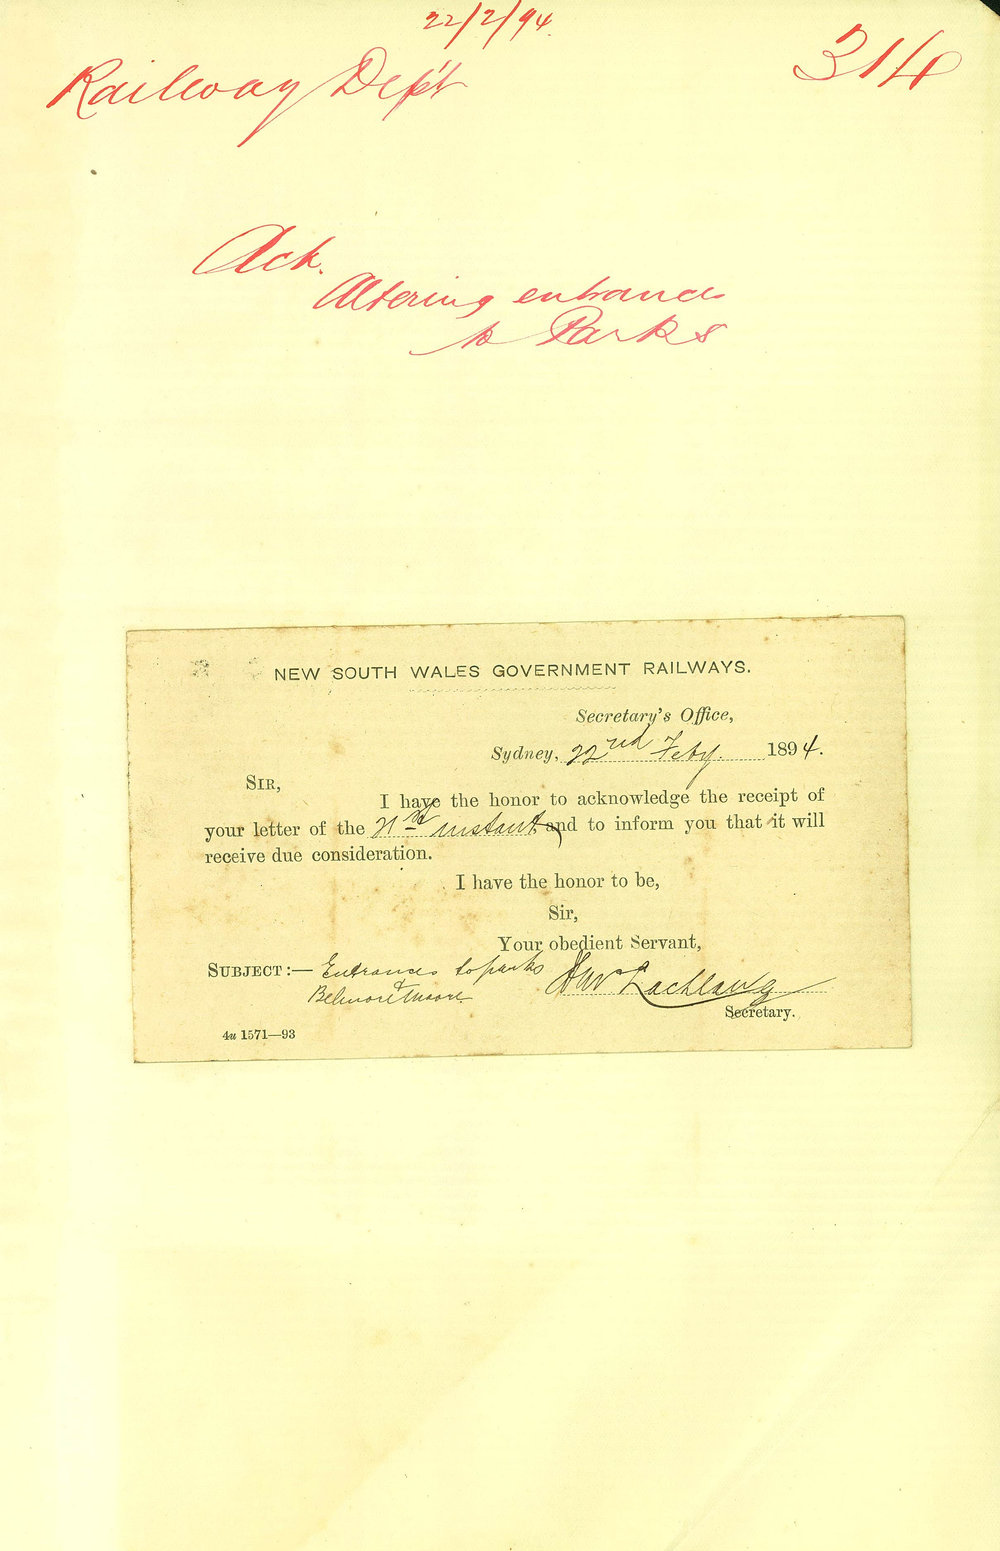 22/2/94.
Railway Dep't
314
Ack.
Altering entrances
to Parks
NEW SOUTH WALES GOVERNMENT RAILWAYS.
Secretary's Office,
Sydney, 22nd Feby. 1894.
SIR,
I have the honor to acknowledge the receipt of
your letter of the 21st instant and to inform you that it will
receive due consideration.
I have the honor to be,
Sir,
Your obedient Servant,
SUBJECT:— Entrances to parks
Belmore & Moore
H McLachlan
Secretary.
4u 1571—93